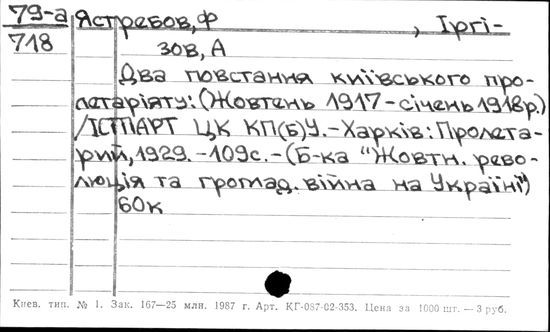 79-а Ястребов, Ф , Іргі-
718 зов, А
Два повстання київського про-
летаріяту: (Жовтень 1917-січень 1918р.)
/ІСТПАРТ ЦК КП(б)У.-Харків: Пролета-
рий, 1929.-109с.-(Б-ка "Жовтн. рево-
люція та громад. війна на Україні")
60к
Киев. тип. № 1. Зак. 167—25 млн. 1987 г. Арт. КГ-087-02-353. Цена за 1000 шт. — 3 руб.